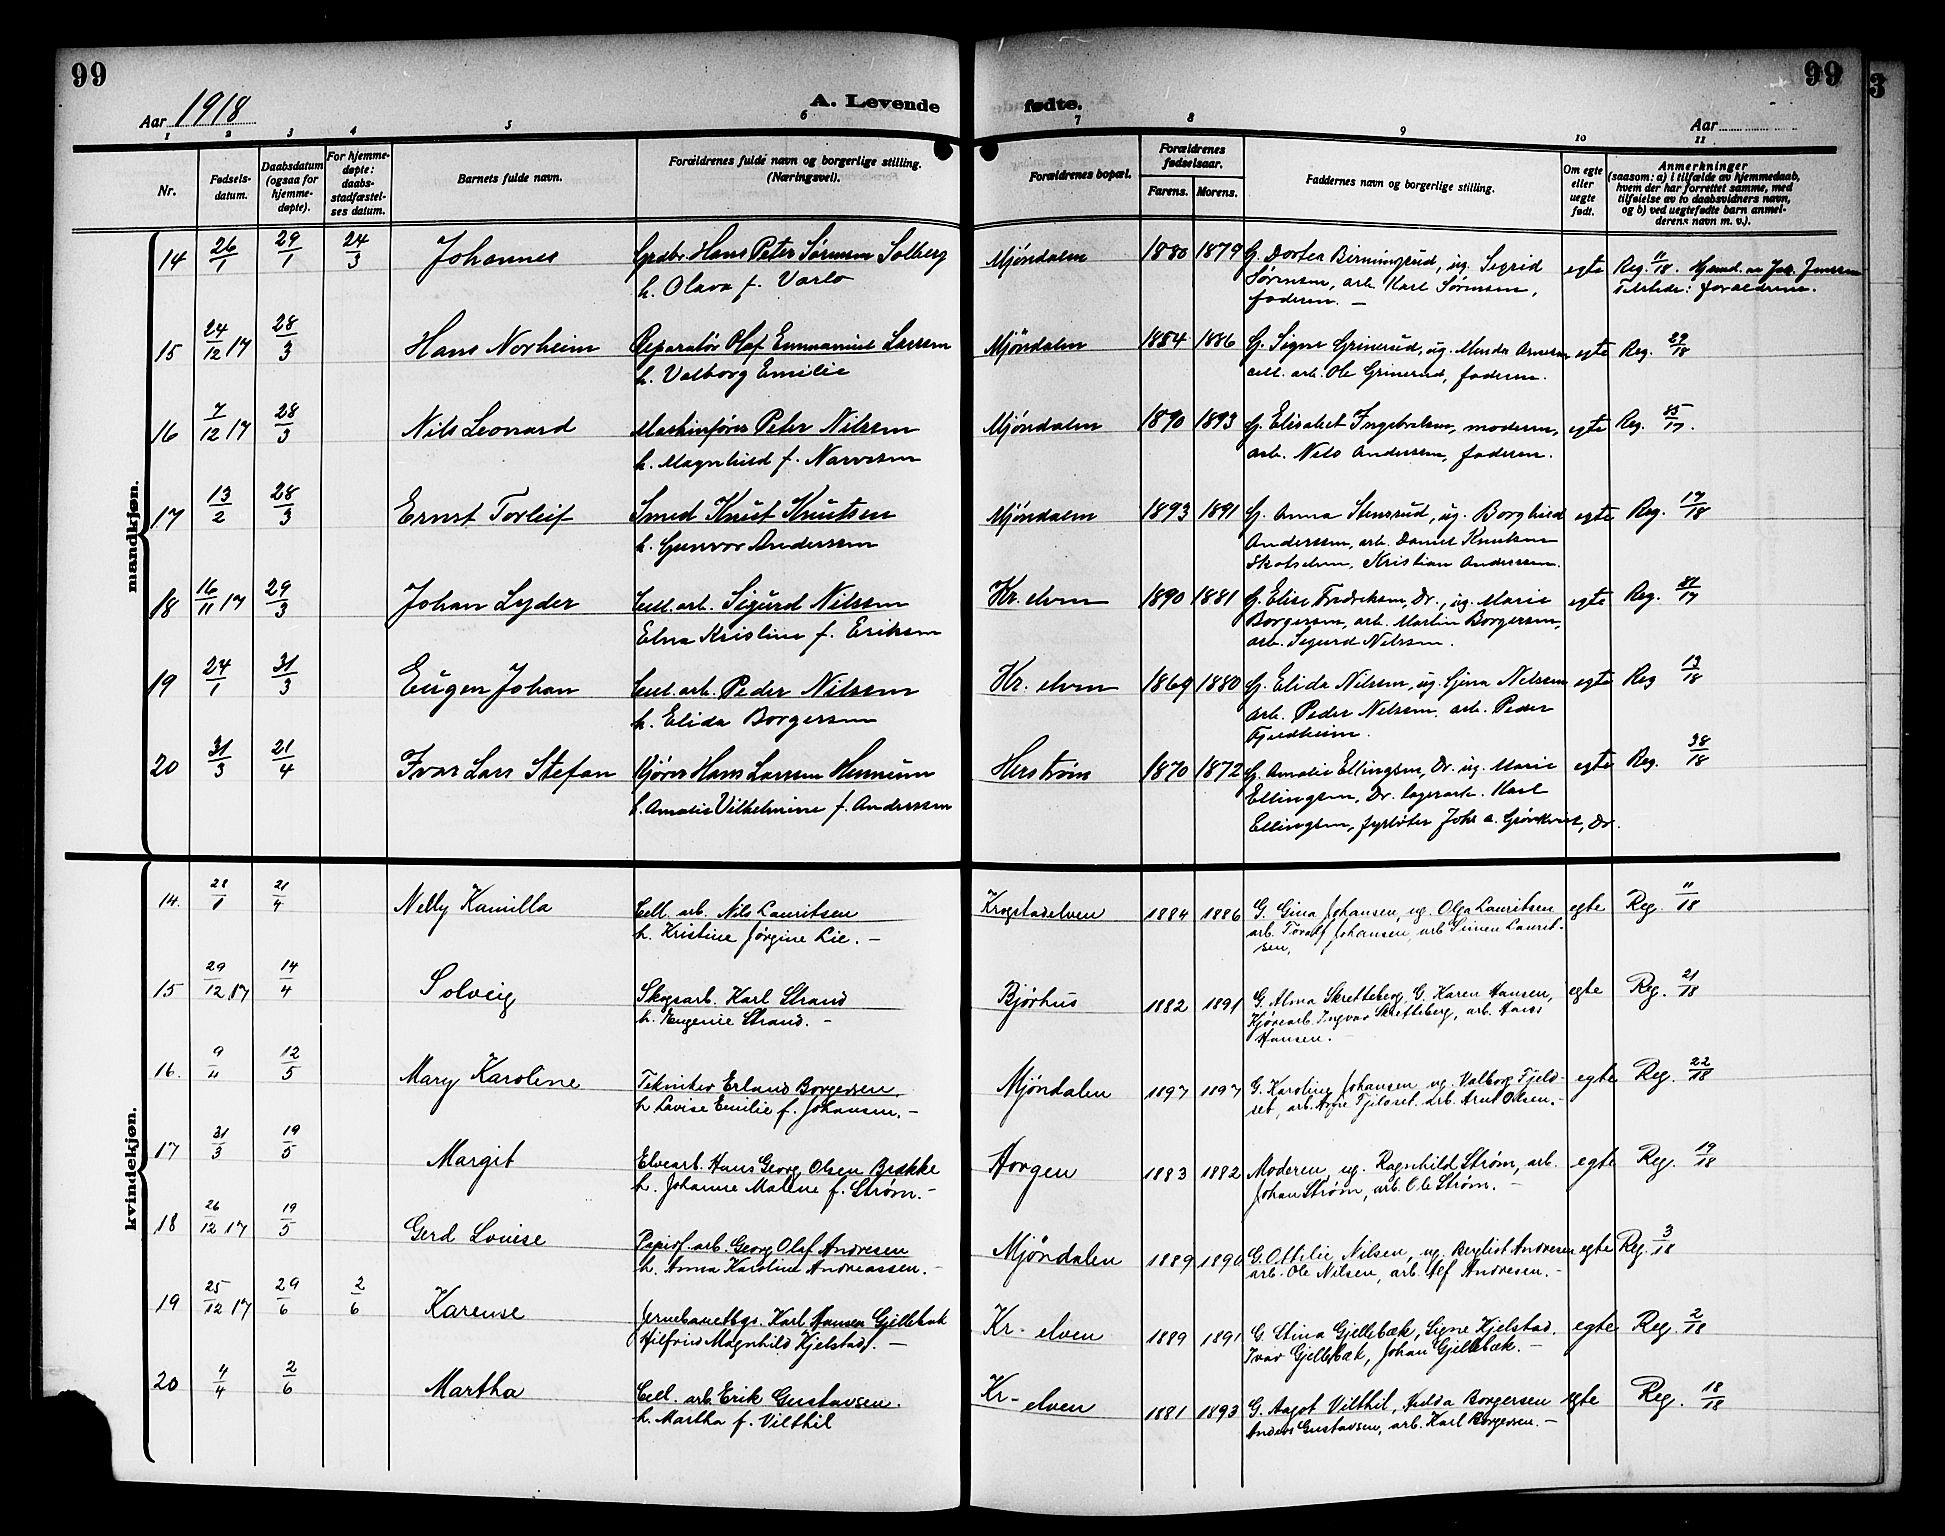 99
99
3
Aar 1918
A. Levende fødte.
Aar
1 2 3 4 5 6 7 8 9 10 11
Nr.
Fødsels-datum.
Daabsdatum (ogsaa for hjemme-døpte).
For hjemme-døpte: daabs-stadfæstel-ses datum.
Barnets fulde navn.
Forældrenes fulde navn og borgerlige stilling. (Næringsvei).
Forældrenes bopæl.
Forældrenes fødselsaar.
Farens. Morens.
Faddernes navn og borgerlige stilling.
Om egte eller uegte født.
Anmerkninger (saasom: a) i tilfælde av hjemmedaab, hvem der har forrettet samme, med tilføielse av to daabsvidners navn, og b) ved uegtefødte barn anmel-derens navn m. v.).
mandkjøn.
14 26/1 29/1 24/3 Johannes Grdbr. Hans Peter Sørensen Solberg Mjøndalen 1880 1879 G. Dortea Birmingrud, ug. Sigrid egte Reg. 11/18. Hjmd. av Joh. Jenssen
h. Olava f. Varlo Sørensen, arb. Karl Sørensen, Tilstede: forældrene.
faderen. —
15 24/12 17 28/3 Hans Norheim Reparatør Olaf Emmanuel Larsen Mjøndalen 1884 1886 G. Signe Grinerud, ug. Minda Arnesen egte Reg. 29/18
h. Valborg Emilie cell. arb. Ole Grinerud, faderen.
16 7/12 17 28/3 Nils Leonard Maskinfører Peter Nilssen Mjøndalen 1890 1893 G. Elisabet Ingebretsen, moderen, egte Reg. 85/17.
h. Magnhild f. Narvesen arb. Nils Anderssen, faderen.
17 13/2 28/3 Ernst Torleif Smed Knut Knutsen Mjøndalen 1893 1891 G. Anna Stensrud, ug. Borghild egte Reg. 17/18
h. Gunvor Anderssen Anderssen, arb. Daniel Knutsen
Skotselven, Kristian Anderssen.
18 16/11 17 29/3 Johan Lyder Cell. arb. Sigurd Nilssen Kr. elven 1890 1881 G. Elise Fredriksen, Dr., ug. Marie egte Reg. 81/17
Elna Kristine f. Eriksen Borgersen, arb. Martin Borgersen,
arb. Sigurd Nilssen.
19 24/1 31/3 Eugen Johan Cell. arb. Peder Nilssen Kr. elven 1869 1880 G. Elida Nilssen, ug. Gina Nilssen egte Reg 13/18
h. Elida Borgersen arb. Peder Nilssen, arb. Peder
Fjeldheim.
20 31/3 21/4 Ivar Lars Stefan Kjører Hans Larssen Hennum Herstrøm 1870 1872 G. Amalie Ellingsen, Dr. ug. Marie egte Reg. 38/18
h. Amalie Vilhelmine f. Anderssen Ellingsen, Dr. lagerarb. Karl
Ellingsen, fyrbøter Johs a. Grønkvist, Dr.
kvindekjøn.
14. 28/1 21/4 Nelly Kamilla Cell. arb. Nils Lauritsen Krogstadelven 1884 1886 G. Gina Johansen, ug. Olga Lauritsen egte Reg. 11/18
h. Kristine Jørgine Lie. — arb. Toralf Johansen, arb Simen Laurit-
sen,
15 29/12 17 14/4 Solveig Skogsarb. Karl Strand Bjørhus 1882 1891 G. Alma Skretteberg, G. Karen Hansen, egte Reg. 21/18
h. Eugenie Strand. — Kjørearb. Ingvar Skretteberg, arb. Hans
Hansen. —
16. 9/11 12/5 Mary Karoline Tekniker Erland Borgersen Mjøndalen 1897 1897 G. Karoline Johansen, ug. Valborg Fjeld- egte Reg. 22/18
h Lovise Emilie f. Johansen. — set, arb. Arne Fjeldset. arb. Arnt Olsen. —
17 31/3 19/5 Margit Elvearb. Hans Georg Olsen Brekke Horgen 1883 1882 Moderen, ug. Ragnhild Strøm, arb. egte Reg. 19/18
h. Johanne Malene f. Strøm. — Johan Strøm, arb. Ole Strøm. —
18 26/12 17 19/5 Gerd Lovise Papirf. arb. Georg Olaf Andresen Mjøndalen 1889 1890 G. Ottilie Nilsen, ug. Bergliot Andresen egte Reg. 3/18
h. Anna Karoline Andreassen. — arb. Ole Nilsen, arb. Alf Andresen. —
19 25/12 17 29/6 2/6 Karense Jernbanetbgs. Karl Hansen Gjellebæk Kr- elven 1889 1891 G. Stina Gjellebæk, Signe Kjelstad. egte Reg. 2/18
Hilfrid Magnhild Kjelstad. — Ivar Gjellebæk, Johan Gjellebæk. —
20 4/4 2/6 Martha Cell. arb. Erik Gustavsen. Kr- elven 1881 1893 G. Aagot Vilthil, Hulda Borgersen egte Reg. 18/18
h. Martha f. Vilthil Anders Gustavsen, arb. Karl Borgersen. —